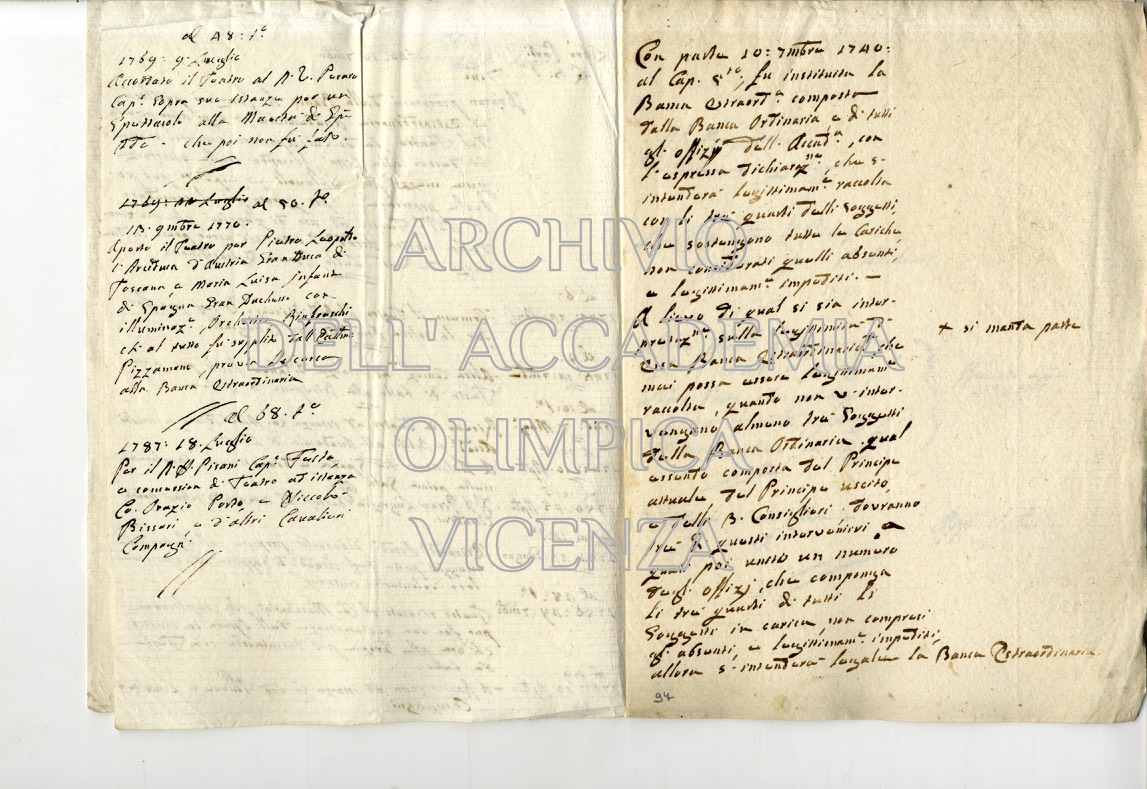 al 48: t.º
1769: 9: Luglio
Accordato il Teatro al N. V. Pesaro
Cap.º sopra sua istanza per un
Spettacolo alla Nascita di
che poi non fu fato.
1769: 10 Luglio al 50. t.º
15. 9mbre 1770.
Aperto il Teatro per Pietro Leopoldo
l'Arciduca d'Austria Gran Duca di
Toscana e Maria Luisa infanta
di Spagna Gran Duchessa con
illuminaz.e Orchestra Rinfreschi
che al tutto fu supplito dal
Pizzamano, previa
alla Banca Estraordinaria
al 68. t.º
1787: 18. Luglio
Per il N. H. Pisani Cap.º Festa
e concession di Teatro ad istanza
Co. Orazio Porto, e Niccolò
Bissari, e d'altri Cavalieri
Compagni
Con parte 10: 7mbre 1740:
al Cap. 5.to, fu instituita la
Banca Estraord.a composta
dalla Banca Ordinaria e di tutti
gl' offizj dell' Accad.a, con
l'espressa dichiaraz.ne, che s'
intenderà legittimam.e raccolta
con li trè quarti delli Soggetti,
che sostengono tutte le Cariche
non considerati quelli absenti,
e legittimam.e impediti. —
A lievo di qual si sia inter-
pretaz.ne sulla legitimità di
essa Banca Estraordinaria che
mai possa essere legittimam.e
raccolta, quando non v'inter-
vengano almeno trè Soggetti
della Banca Ordinaria. qual
essendo composta del Principe
attuale del Principe uscito,
e delli 3. Consiglieri dovranno
trè di questi intervenirvi a
quali poi unito un numero
degl' offizj, che componga
li trè quarti di tutti li
Soggetti in carica non compresi
gl' absenti, e legittimam.e impediti,
allora s'intenderà legale la Banca Estraordinaria.
+ si manda parte
94
ARCHIVIO
DELL'ACCADEMIA
OLIMPICA
VICENZA